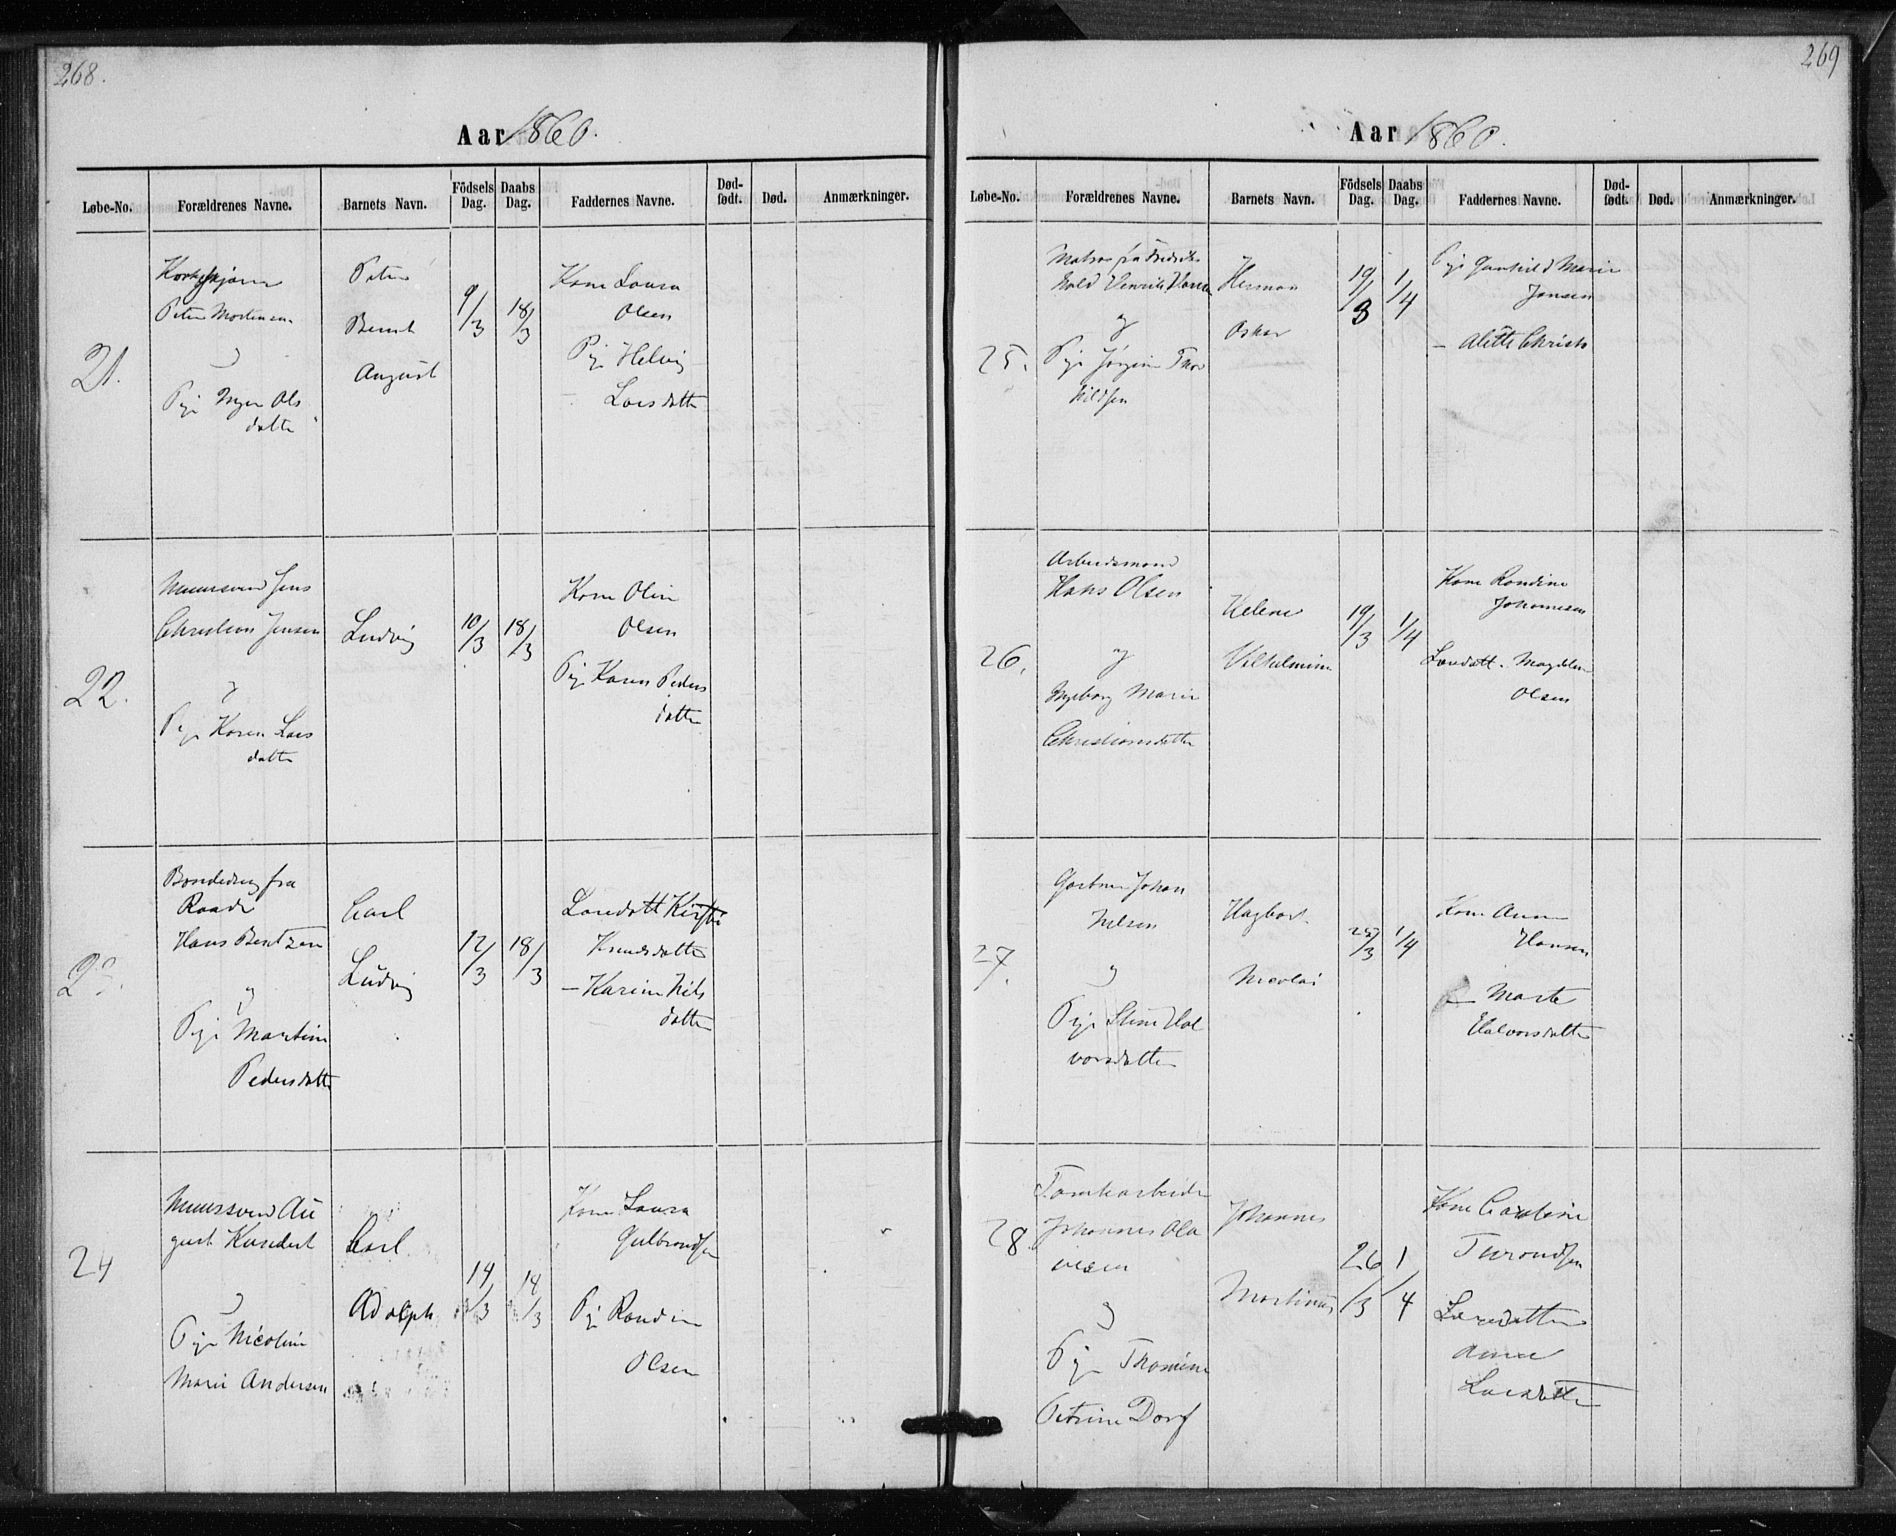 268.
Aar 1860.
Løbe-No. Forældrenes Navne. Barnets Navn. Födsels Dag. Daabs Dag. Faddernes Navne. Død-født. Død. Anmærkninger.
21.
Peter Mortensen
Pige Inger Ols
datter
Peter
Bernt
August
9/3
18/3
Kone Laura
Olsen
Pige Helvig
Larsdatter
22.
Muursvend Jens
Christian Jensen
og
Pige Karen Lars
datter
Ludvig
10/3
18/3
Kone Oline
Olsen
Pige Karen Peders
datter
Bondedreng fra
Raade
Hans Bentzen
og
Pige Martine
Pedersdatter
Carl
Ludvig
12/3
18/3
Knudsdatter
– Karine Nils
datter
24
Muursvend Au
gust
og
Pige Nicoline
Marie Andersen
Carl
Adolph
14/3
14/3
Kone Laura
Gulbrandsen
Pige Randine
Olsen
269
Aar 1860.
Løbe-No. Forældrenes Navne. Barnets Navn. Födsels Dag. Daabs Dag. Faddernes Navne. Død-født. Død. Anmærkninger.
25.
Matros fra Fredriks
hald Henrik Hansen
og
Pige Jørgine Thor
kildsen
Herman
Oskar
19/3
1/4
Pige Gunhild Marie
Jensen
– Alette
26.
Arbeidsmand
Hans Olsen
og
Ingeborg Marie
Christiansdatter
Helene
Vilhelmine
19/3
1/4
Kone Randine
Johannesen
Magdalene
Olsen
27.
Gartner Johan
Nilsen
og
Pige Stine Hal
vorsdatter
Hagbart
Nicolai
25/3
1/4
Kone Anne
Hansen
– Marte
Halvorsdatter
28.
Johannes Ola
vesen
og
Pige Thomine
Petrine Dorf
Johannes
Martinus
26/3
1/4
Kone Caroline
Throndsen
Anne
Larsdatter